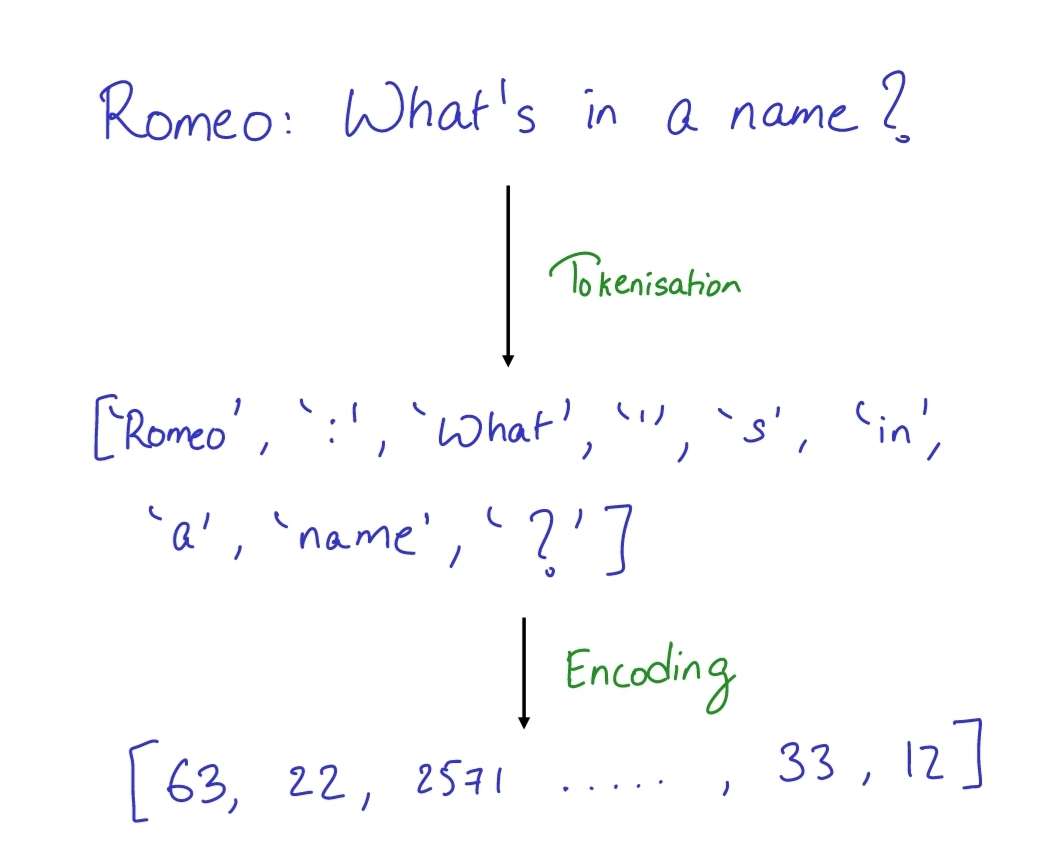 Romeo: What's in a name?
Tokenisation
['Romeo', ':', 'What', ''', 's', 'in',
'a', 'name', '?']
Encoding
[63, 22, 2571 ..... , 33, 12]